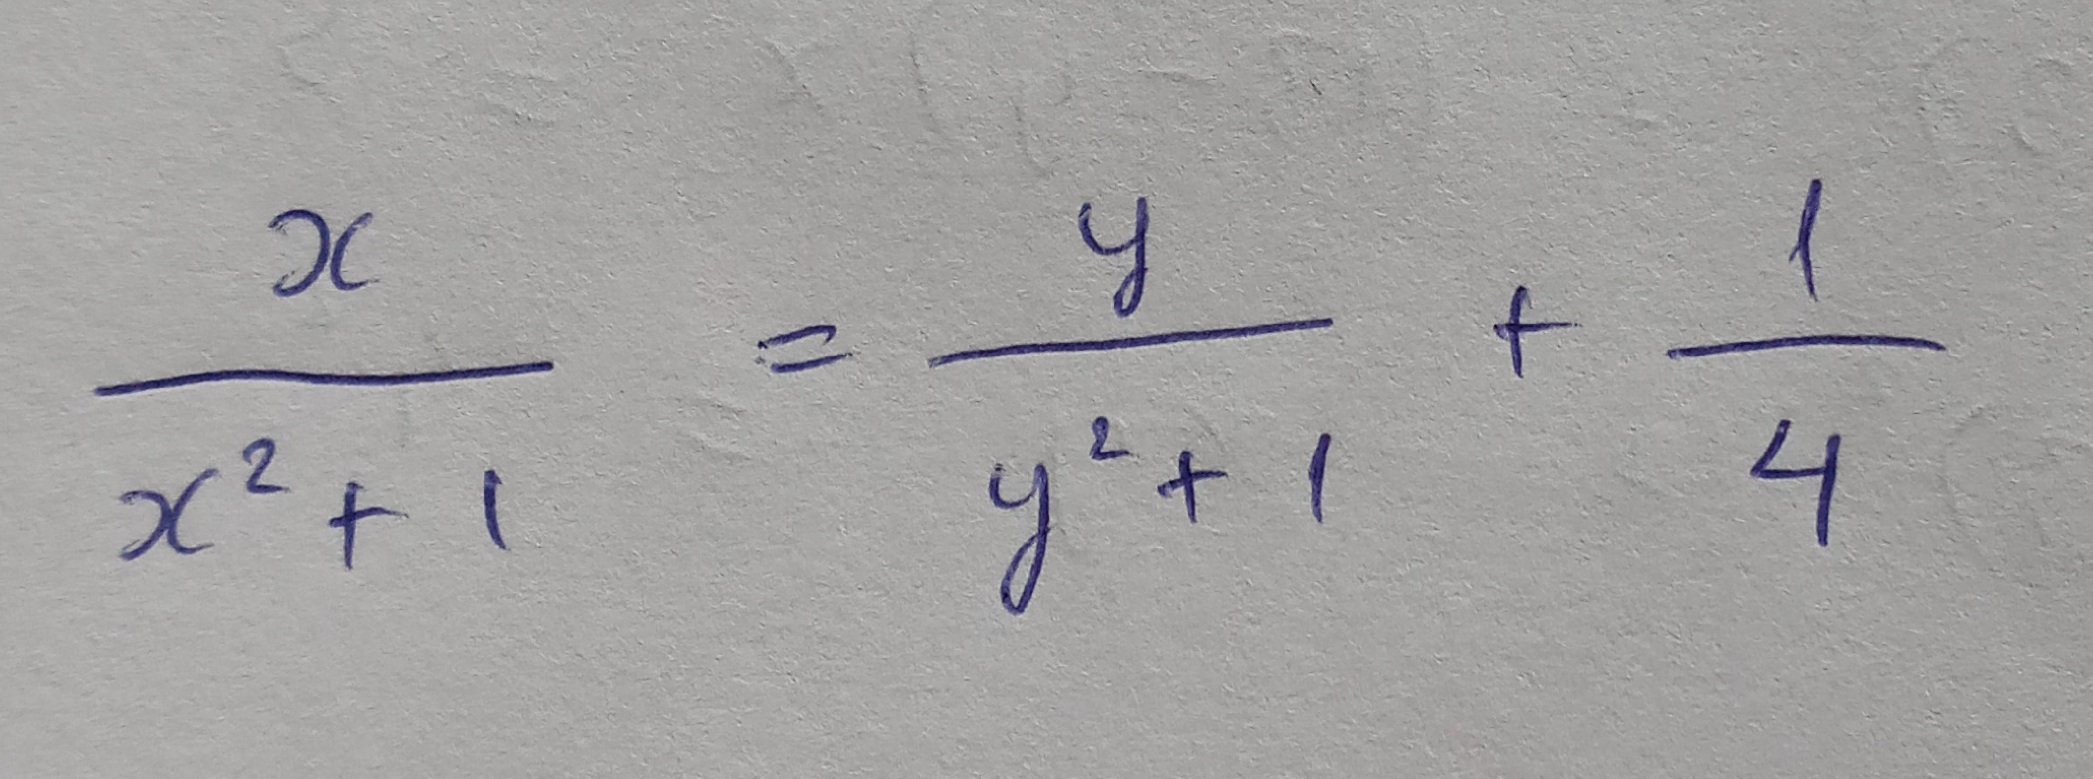 x/(x²+1) = y/(y²+1) + 1/4